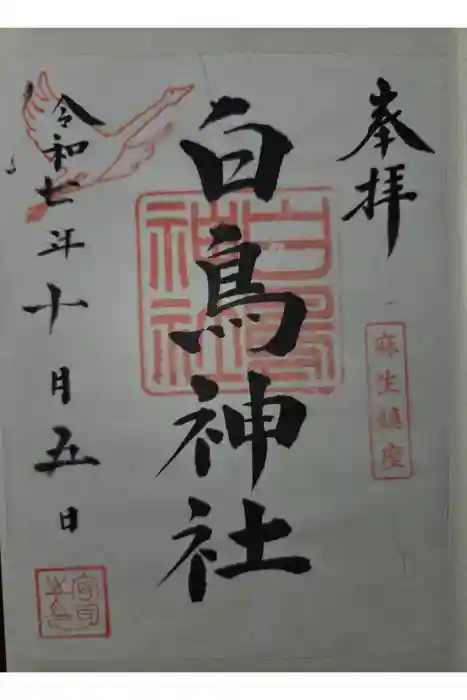 奉拝
麻生鎮座
白鳥神社
白鳥神社
令和七年十月五日
宮司之印